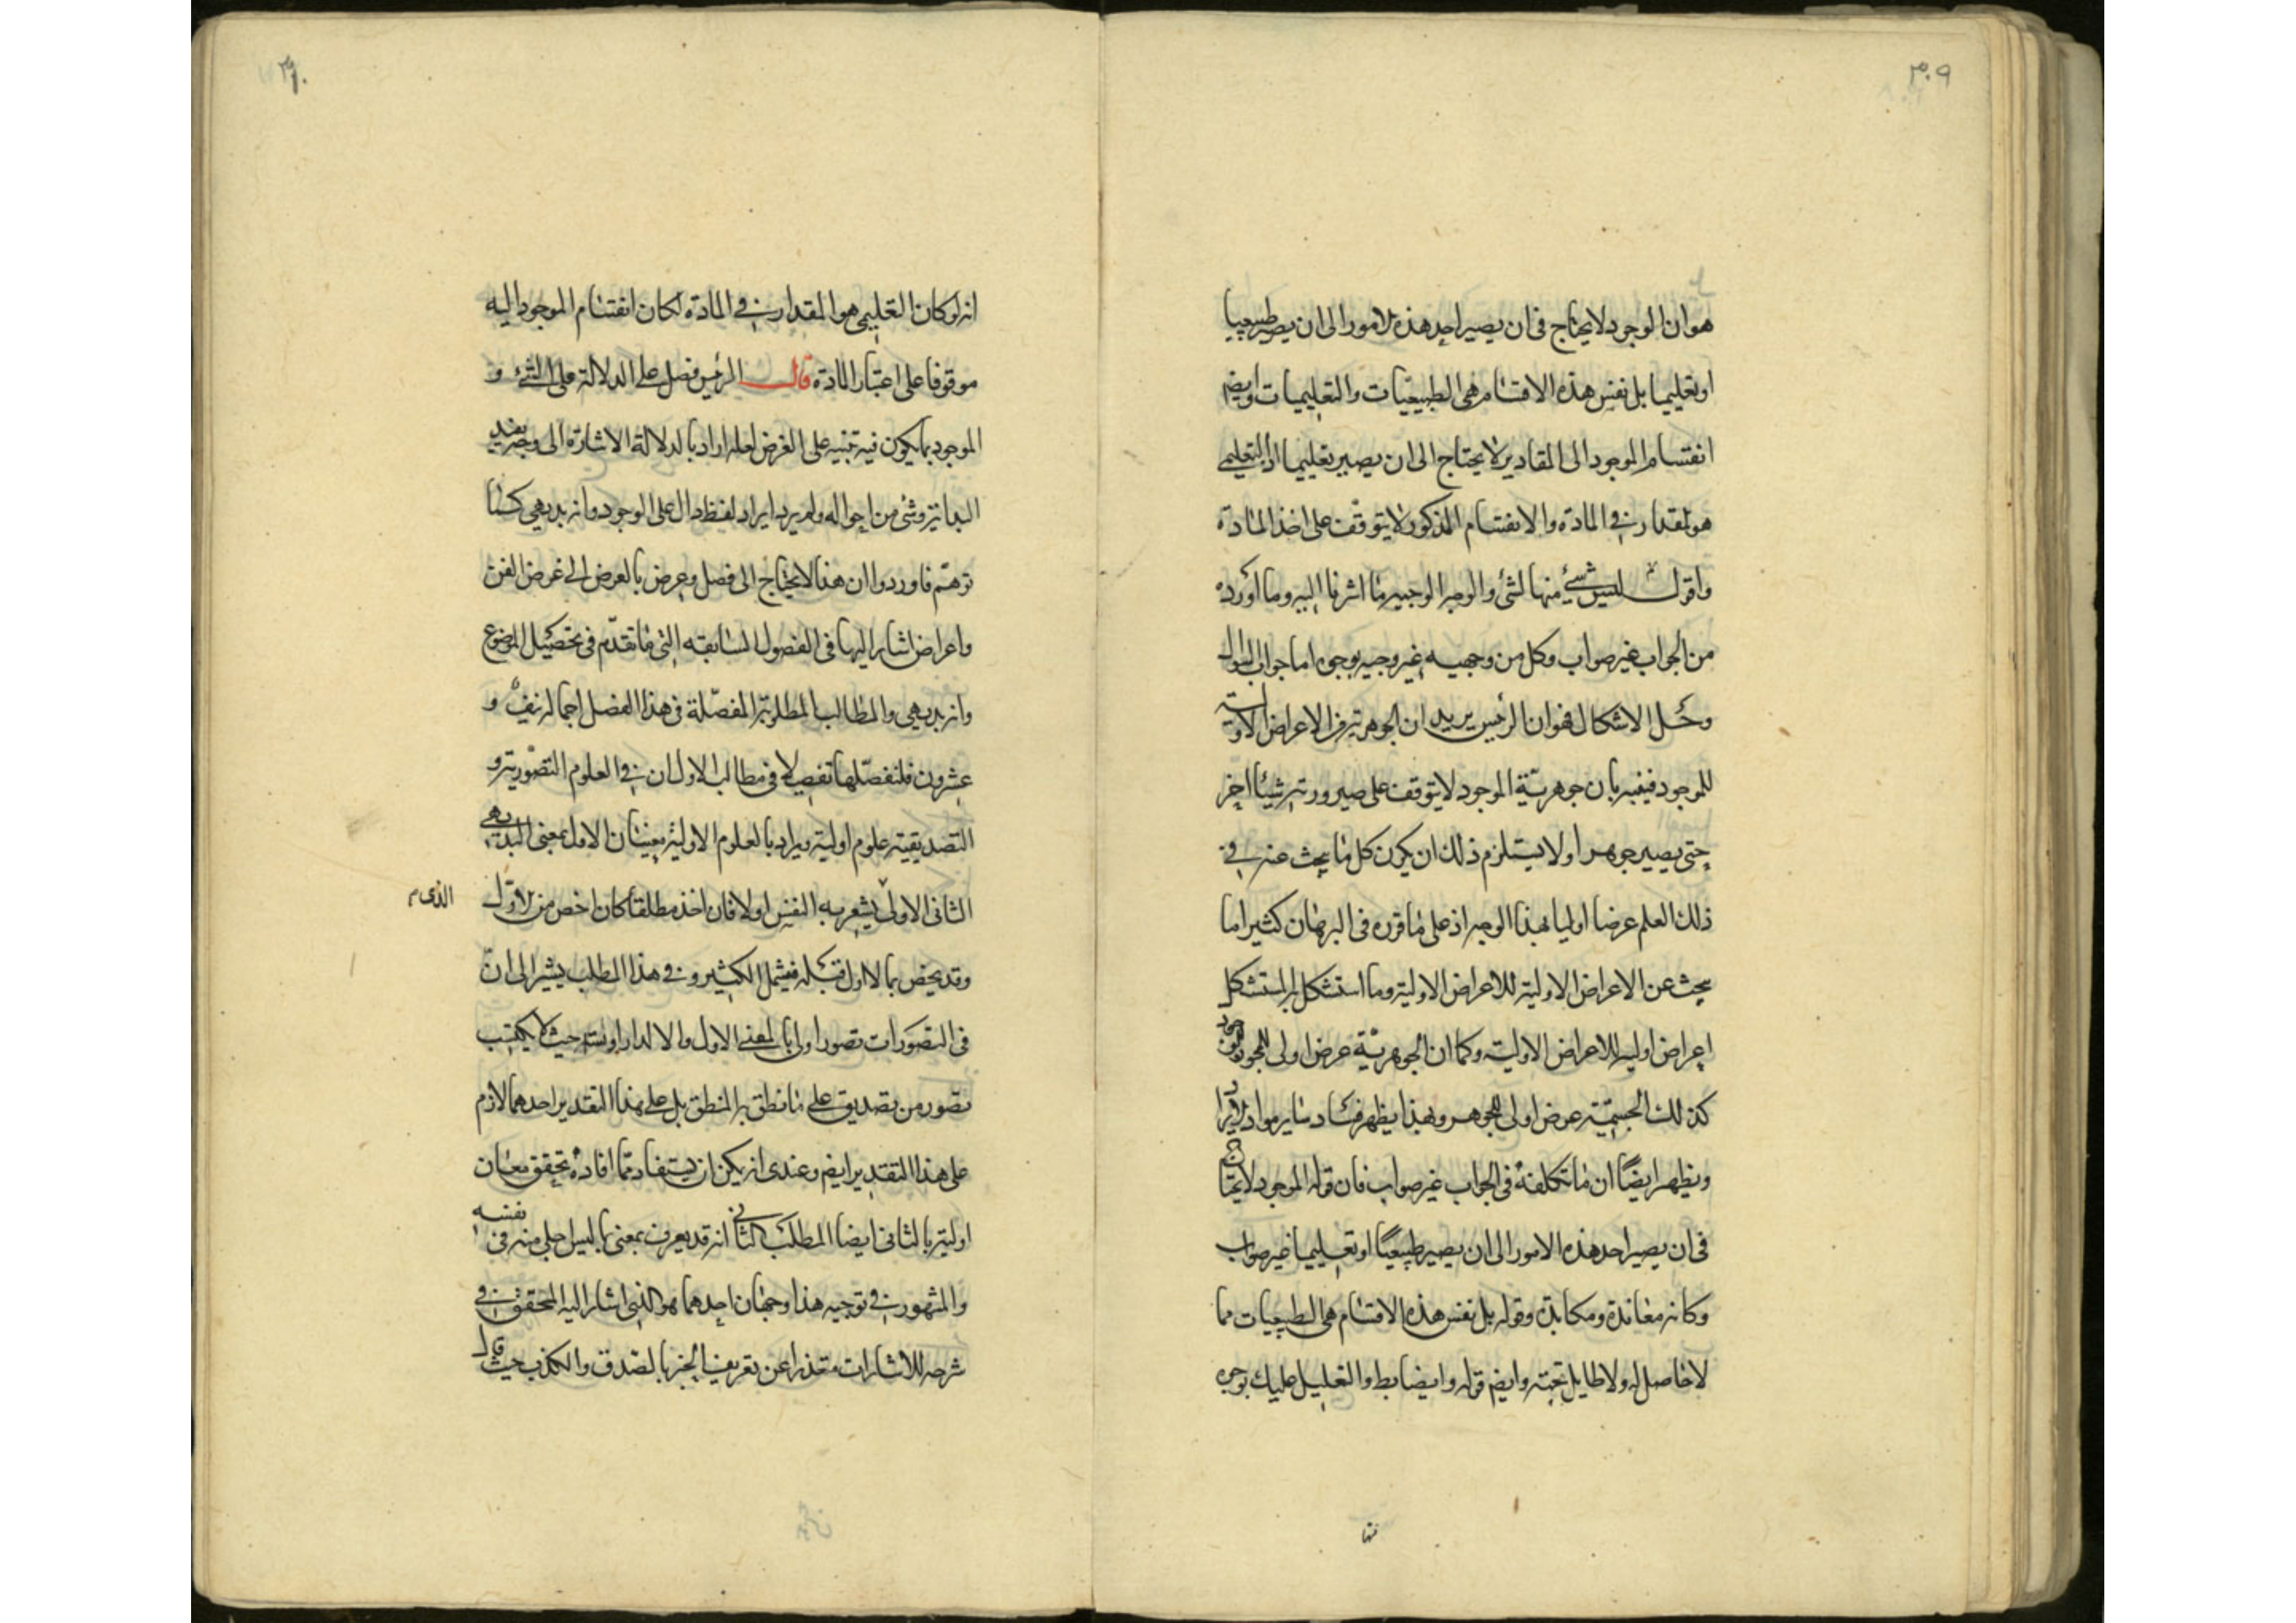 ٣٠٩
هو ان الوجود لا يحتاج فى ان يصير احد هذه الامور الى ان يصير طبيعيا
او تعليميا بل نفس هذه الاقسام هى الطبيعيات والتعليميات وايضا
انقسام الموجود الى المقادير لا يحتاج الى ان يصير تعليميا اذ التعليمى
هو المقدار فى المادة والانقسام المذكور لا يتوقف على اخذ المادة
واقول ليس شئ منها لشئ والوجه الوجيه ما اشرنا اليه وما اورده
من الجواب غير صواب وكل من وجهيه غير وجيه بوجوه اما جواب السؤال
وحل الاشكال فهو ان الرئيس يريد ان الجوهرية من الاعراض الاولية
للموجود فينبه بان جوهرية الموجود لا يتوقف على صيرورته شيئا اخر
حتى يصير جوهرا ولا يستلزم ذلك ان يكون كل ما يبحث عنه فى
ذلك العلم عرضا اوليا بهذا الوجه اذ على ما قرره فى البرهان كثيرا ما
يبحث عن الاعراض الاولية للاعراض الاولية وما استشكل به المستشكل
اعراض اولية للاعراض الاولية وكما ان الجوهرية عرض اولى للموجود
كذلك الجسمية عرض اولى للجوهر وبهذا يظهر فساد ساير مواد
ويظهر ايضا ان ما تكلفه فى الجواب غير صواب فان قوله الموجود لا يحتاج
فى ان يصير احد هذه الامور الى ان يصير طبيعيا او تعليميا غير صواب
وكانه معاندة ومكابرة وقوله بل نفس هذه الاقسام هى الطبيعيات مما
لا حاصل له ولا طايل تحته وايضا قوله وايضا والتعليل عليك بوجوه
منها
٣١٠
انه لو كان التعليمى هو المقدار فى المادة لكان انقسام الموجود اليه
موقوفا على اعتبار المادة قال الرئيس فصل على الدلالة على الشئ و
الموجود بما يكون فيه تنبيه على الغرض لعله اراد بالدلالة الاشارة الى وجه يفيد
البداية وشئ من احواله ولم يرد ايراد لفظ دال على الوجود وانه بديهى كما
توهم فاوردوا ان هذا لا يحتاج الى فصل وعرض بالعرض الى غرض الفن
واعراض اشار اليها فى الفصول السابقه التى ما تقدم فى تحصيل الموضوع
وانه بديهى والمطالب المطلوبة المفصلة فى هذا الفصل اجماله نيف و
عشرون فلنفصلها تفصيلا فى مطالب الاول ان فى العلوم التصورية و
التصديقية علوم اولية ويراد بالعلوم الاولية معنيان الاول بمعنى البديهى
الثانى الاولى يشعر به النفس اولا فان اخذ مطلقا كان اخص من الاول
الذى م
وقد يخص بما لا اول قبله فيشمل الكثير وفى هذا المطلب يشير الى ان
فى التصورات تصورا اوليا بالمعنى الاول والا لدار او تسلسل حيث لا يكتسب
تصور من تصديق على ما نطق به المنطق بل على هذا التقدير احدهما لازم
على هذا التقدير ايضا وعندى انه يمكن ان يستفاد مما افاده تحقق معان
اولية بالثانى ايضا المطلب الثانى انه قد يعرف بمعنى ما ليس اجلى منه فى نفسه
والمشهور فى توجيه هذا وجهان احدهما هو الذى اشار اليه المحقق فى
شرحه للاشارات معتذرا عن تعريف الخبر بالصدق والكذب حيث قال